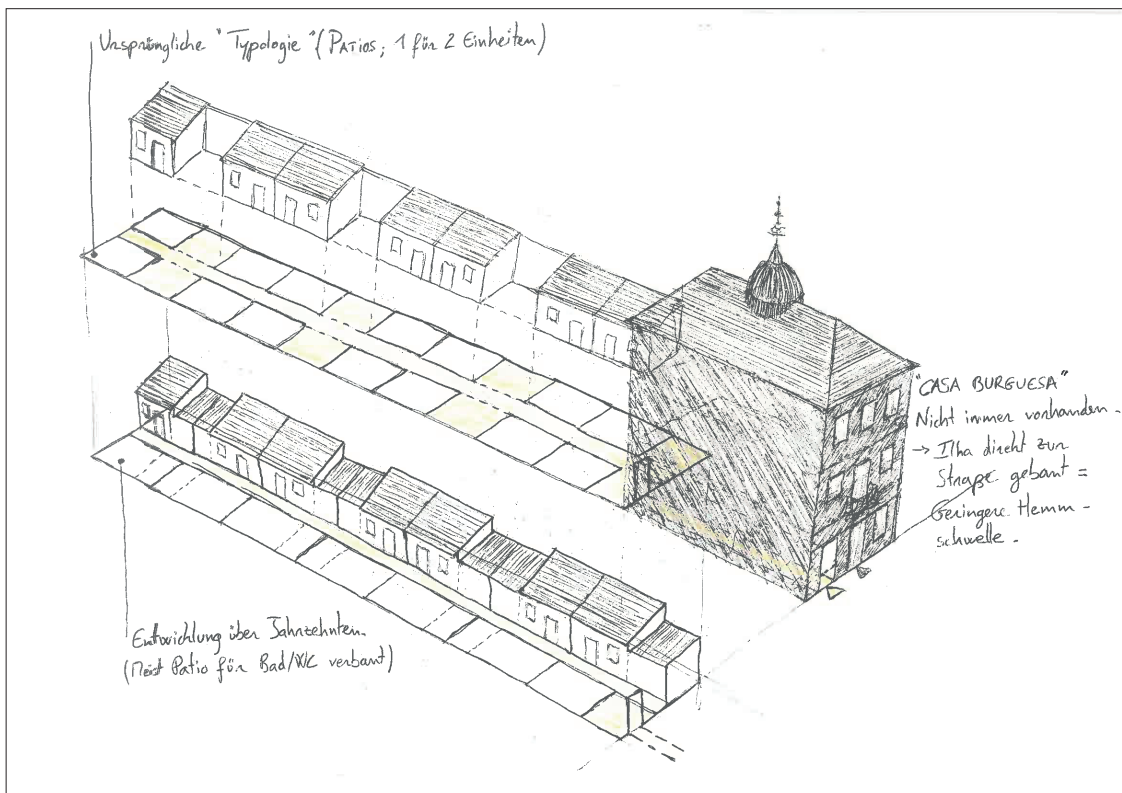 Ursprüngliche "Typologie" (PATIOS; 1 für 2 Einheiten)
"CASA BURGUESA"
Nicht immer vorhanden.
→ Ilha direkt zur
Straße gebaut =
Geringere Hemm-
schwelle.
Entwicklung über Jahrzehnten.
(Meist Patio für Bad/WC verbaut)